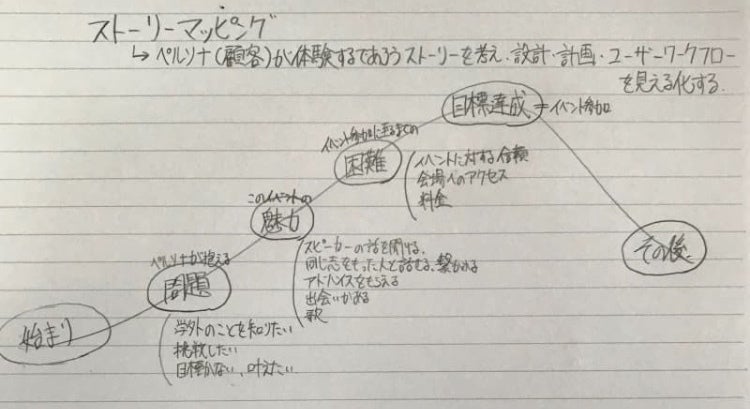 ストーリーマッピング
↳ ペルソナ(顧客)が体験するであろうストーリーを考え、設計・計画・ユーザーワークフロー
を見える化する.
目標達成 = イベント参加
イベント参加に至るまでの
困難
イベントに対する信頼
会場へのアクセス
料金
このイベントの
魅力
スピーカーの話を聞ける、
同じ志をもった人と話せる、繋がれる
アドバイスをもらえる
出会いがある
ペルソナが抱える
問題
学外のことを知りたい
挑戦したい
目標がない、叶えたい
始まり
その後